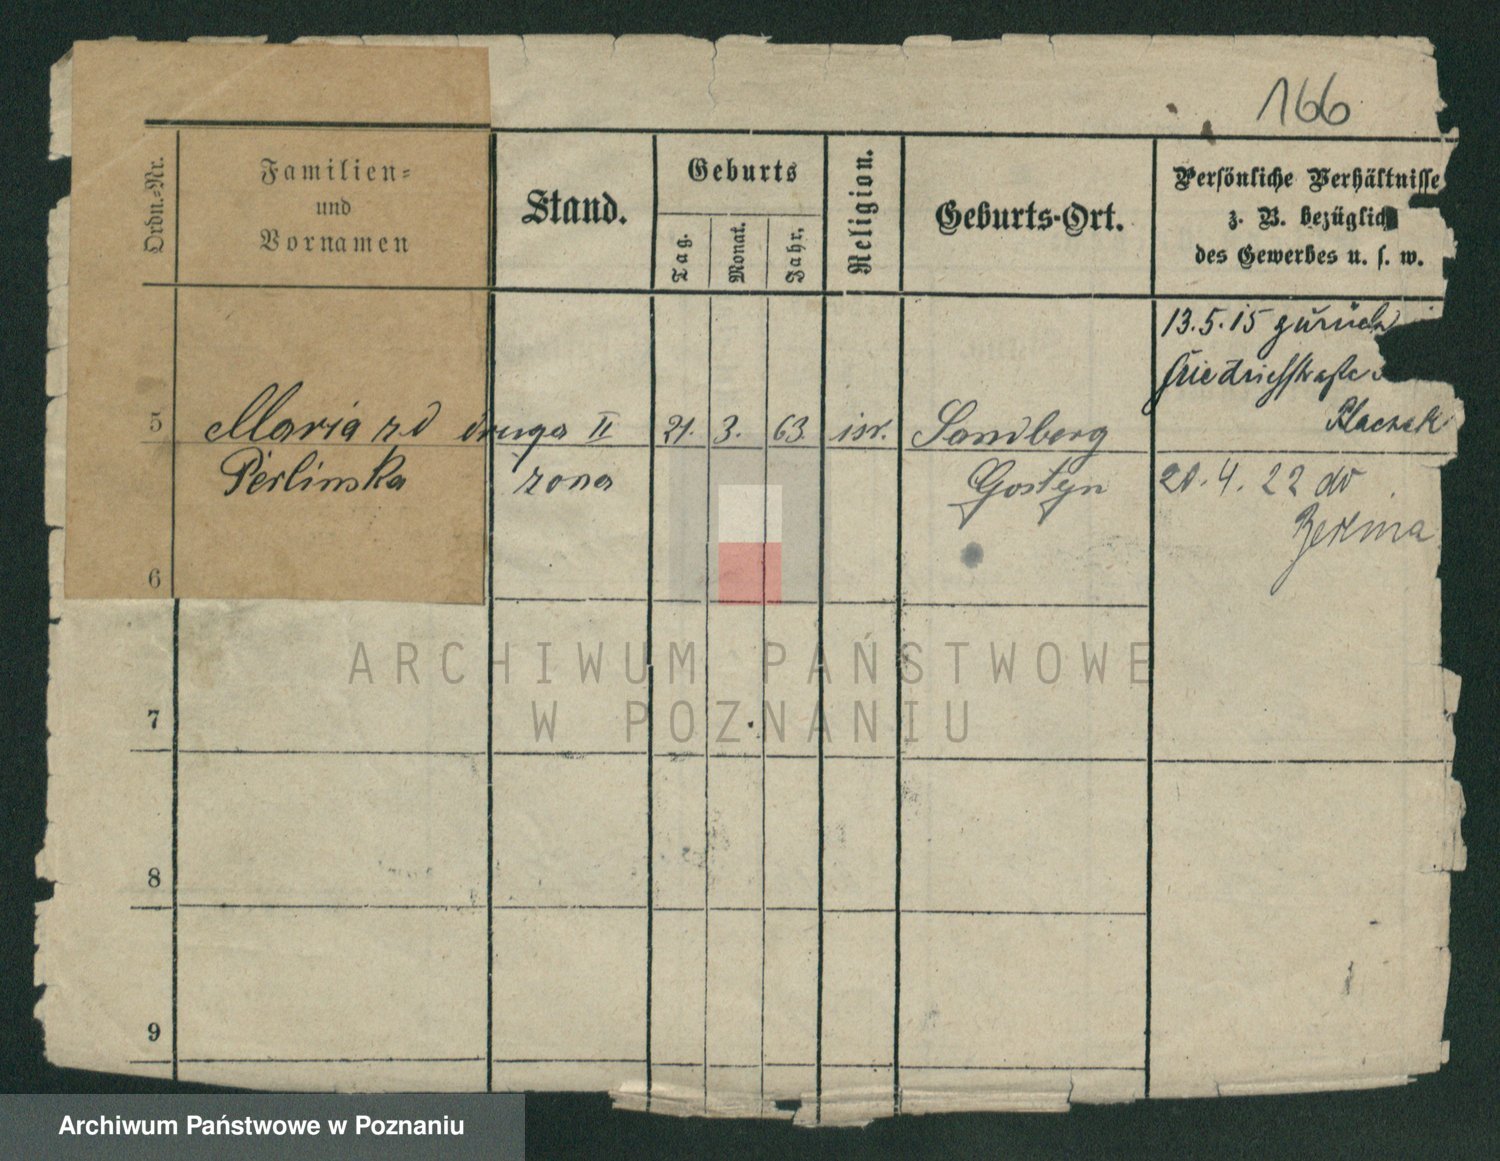 166
Ordn.-Nr.
Familien-
und
Vornamen
Stand.
Geburts
Tag.
Monat.
Jahr.
Religion.
Geburts-Ort.
Persönliche Verhältnisse
z. B. bezüglich
des Gewerbes u. s. w.
13.5.15 zurück
Friedrichstraße
Placzek
5 Maria zd druga II 21. 3. 63 isr. Sandberg
Perlinska żona Gostyn 21.4.22 do
Berlina
6
ARCHIWUM PAŃSTWOWE
W POZNANIU
7
8
9
Archiwum Państwowe w Poznaniu